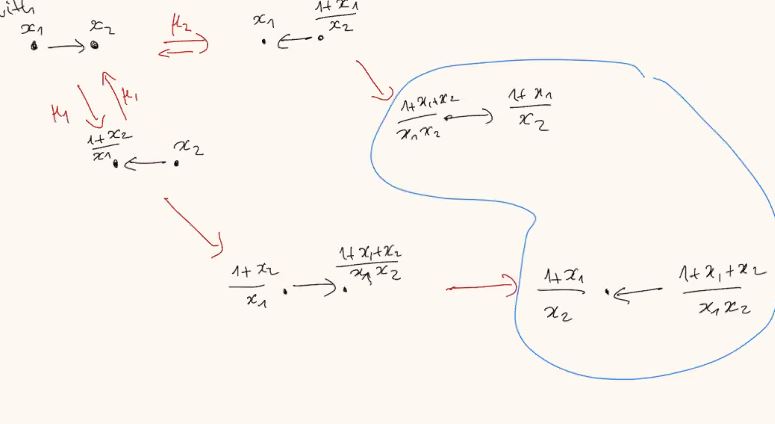 with
x₁ → x₂ μ₂ ⇌ x₁ ← (1+x₁)/x₂
μ₁ μ₁
(1+x₁+x₂)/(x₁x₂) → (1+x₁)/x₂
(1+x₂)/x₁ ← x₂
(1+x₂)/x₁ → (1+x₁+x₂)/(x₁x₂) → (1+x₁)/x₂ ← (1+x₁+x₂)/(x₁x₂)